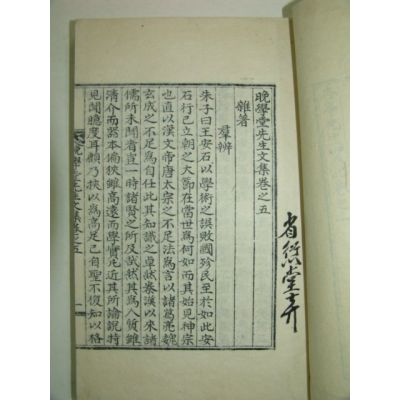 晚學堂先生文集卷之五
雜著
羣辨
朱子曰王安石以學術之誤敗國殄民至於如此安
石行己立朝之大節在當世爲何如而其始見神宗
也直以漢文帝唐太宗之不足法爲言以諸葛亮魏
玄成之不足爲自任此其知識之卓然秦漢以來諸
儒所未聞者豈一時諸賢之所及然其爲人質雖
清介而器本偏狹雖高遠而學實凡近其所論說特
見聞臆度耳顧乃挾以爲高足己自聖不復知以格
晚學堂先生文集卷之五
一
省 堂